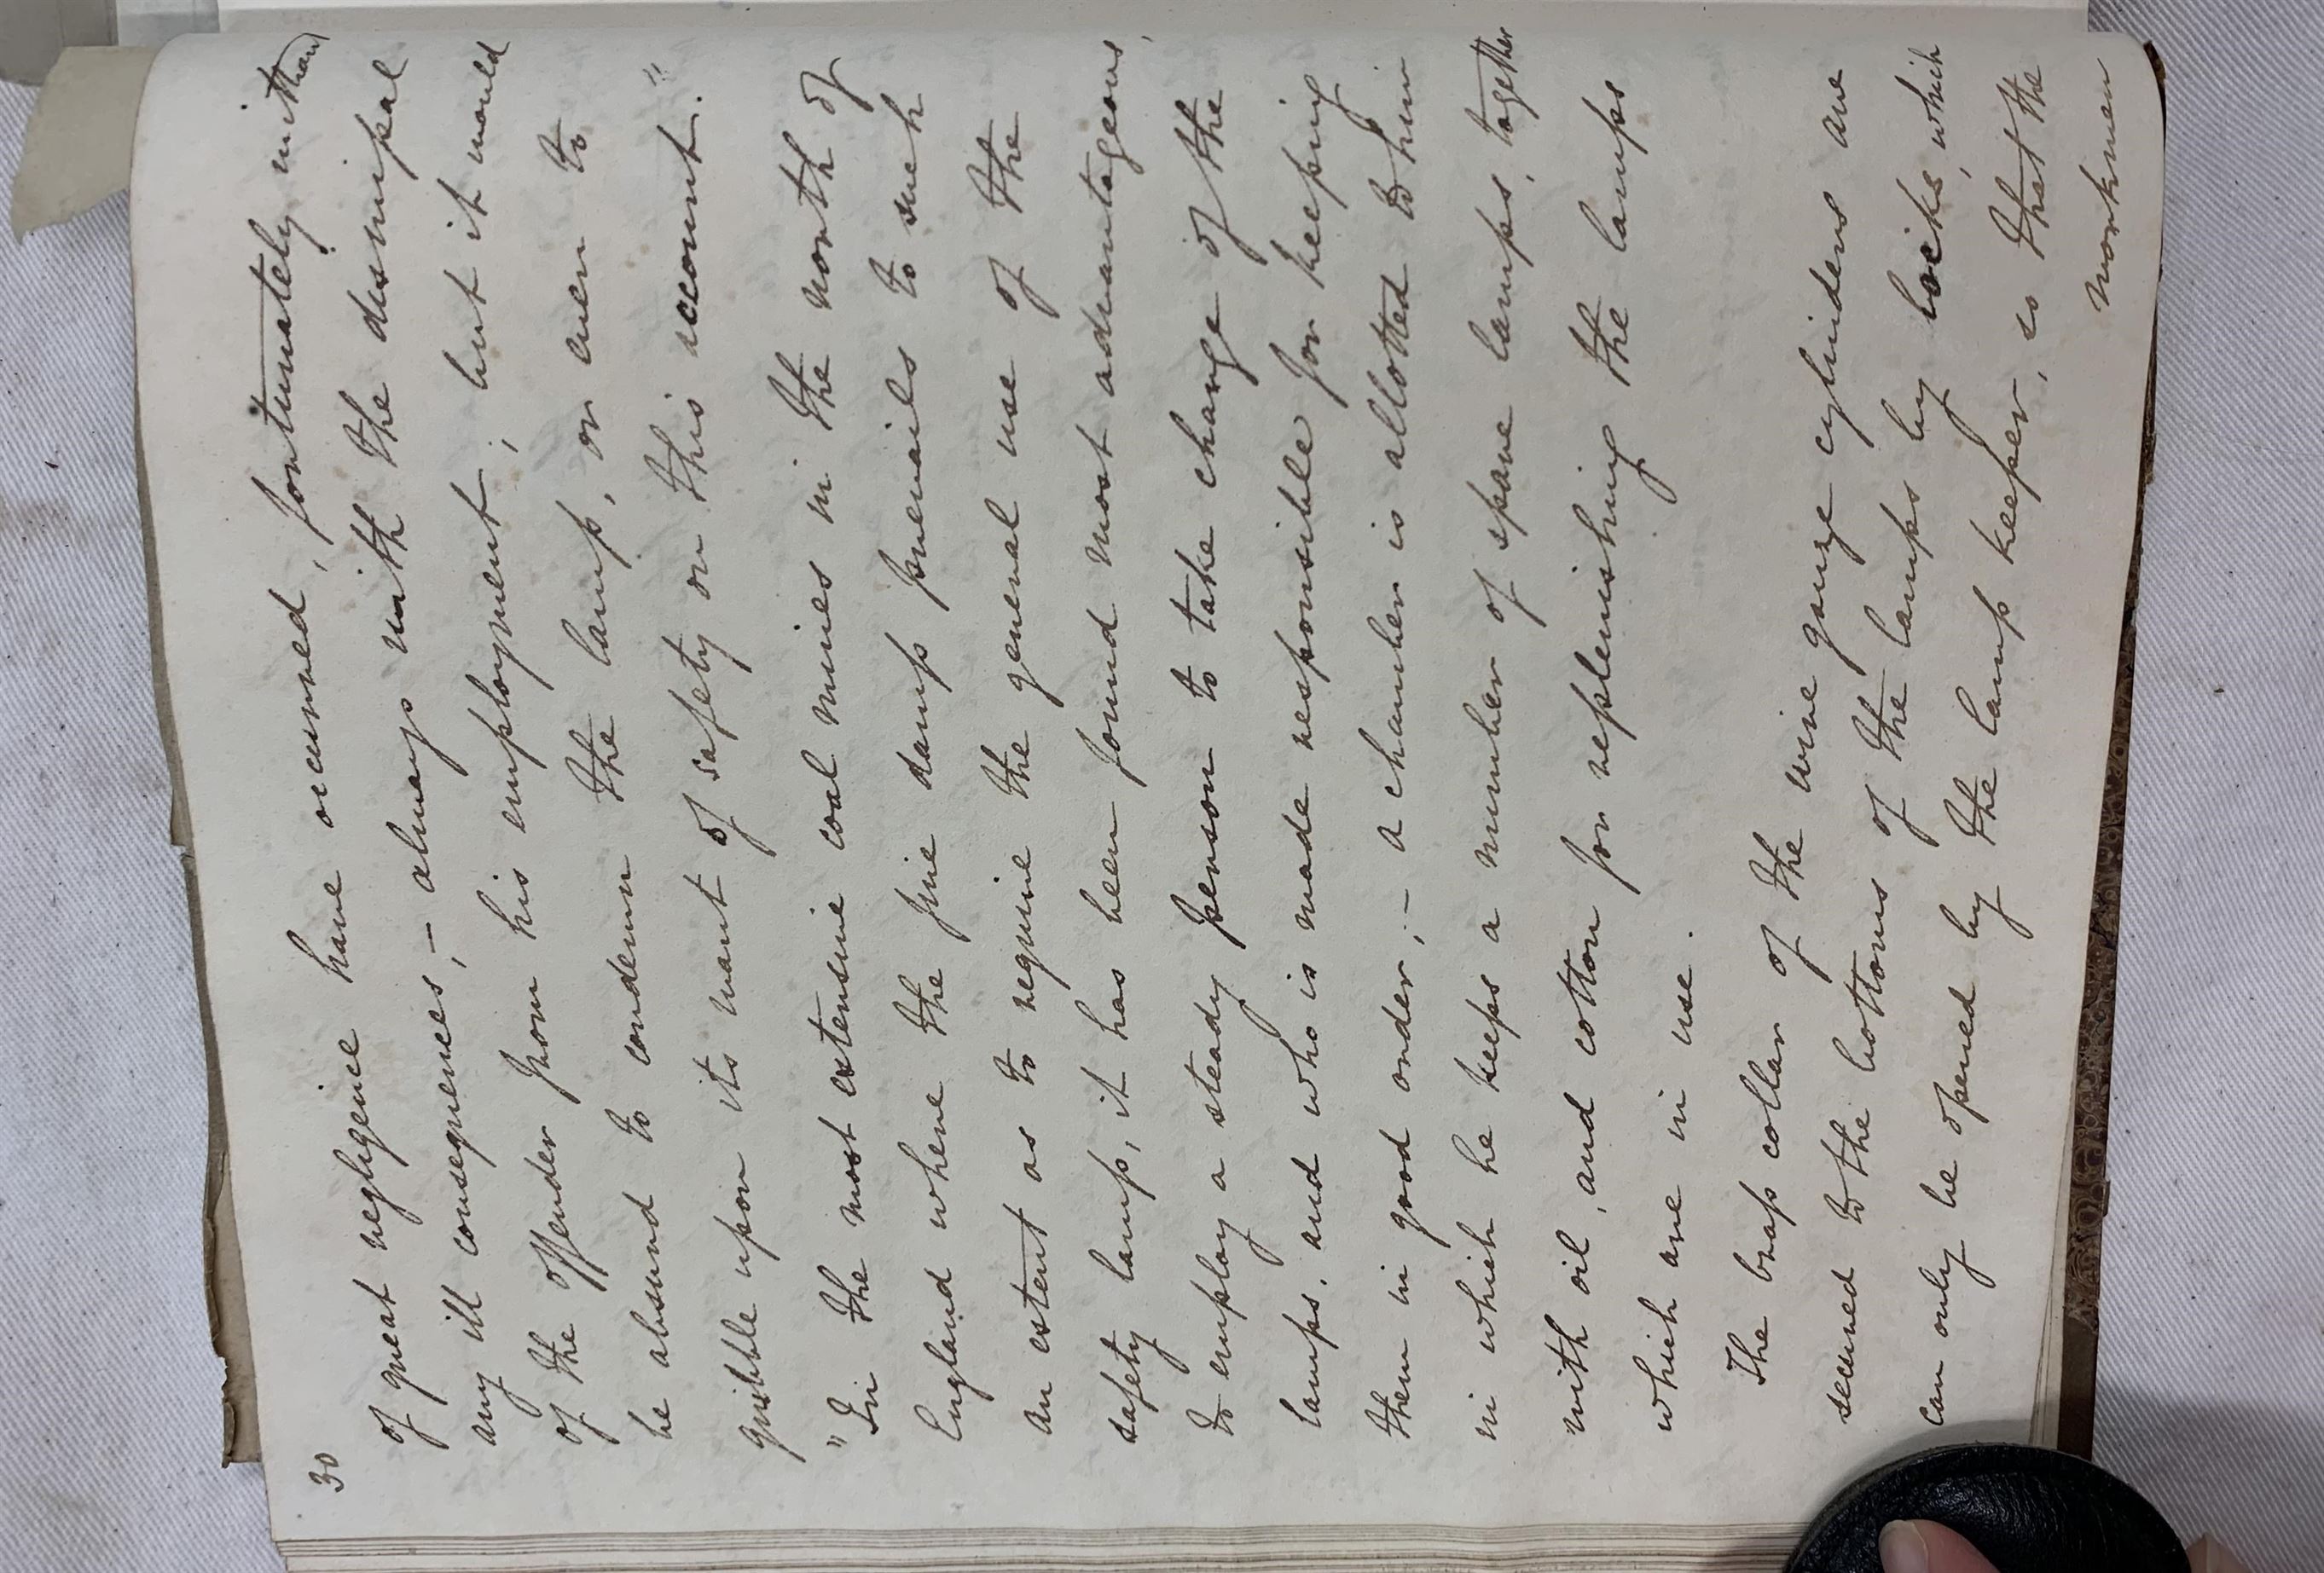 30
of great negligence have occurred, fortunately without
any ill consequences, – always with the dismissal
of the offender from his employment; but it would
be absurd to condemn the lamp, or even to
quibble upon its want of safety on this account."
"In the most extensive coal mines in the north of
England where the fire damp prevails to such
an extent as to require the general use of the
safety lamp, it has been found most advantageous,
to employ a steady person to take charge of the
lamps, and who is made responsible for keeping
them in good order; – a chamber is allotted to him
in which he keeps a number of spare lamps, together
with oil, and cotton for replenishing the lamps
which are in use.
The brass collar of the wire gauze cylinders are
secured to the bottoms of the lamps by locks, which
can only be opened by the lamp keeper, so that the
workmen